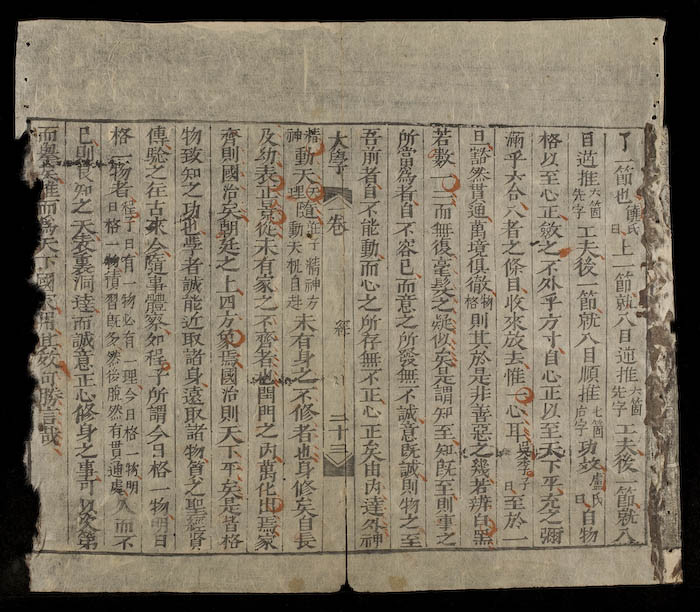 了一節也熊氏曰上一節就八目逆推六箇先字工夫後一節就八
目逆推六箇先字工夫後一節就八目順推七箇后字功效盧氏曰自物
格以至心正斂之不外乎方寸自心正以至天下平充之彌
滿乎六合六者之條目收來放去惟一心耳吳季子曰至於一
旦豁然貫通萬境俱徹物格則其於是非善惡之幾若辨白黑
若數一二而無復毫髮之疑似矣是謂知至知既至則事之
所當爲者自不容已而意之所發無不誠意既誠則物之至
吾前者自不能動而心之所存無不正心正矣由内達外神
大學 卷 經 二十三
動天隨莊子精神方動天機自未有身之不修者也身修矣自長
及幼表正景從未有家之不齊者也閨門之内萬化出焉家
齊則國治矣朝廷之上四方象焉國治則天下平矣是皆格
物致知之功也學者誠能近取諸身遠取諸物質之聖經賢
傳驗之往古來今隨事體察如程子所謂今日格一物明日
格一物者程子曰有一物必有一理今日格一物明日格一物積習既多然後脫然有貫通處久而不
已則良知之天表裏洞達而誠意正心修身之事可以次第
而舉矣推而爲天下國家用其效可勝言哉